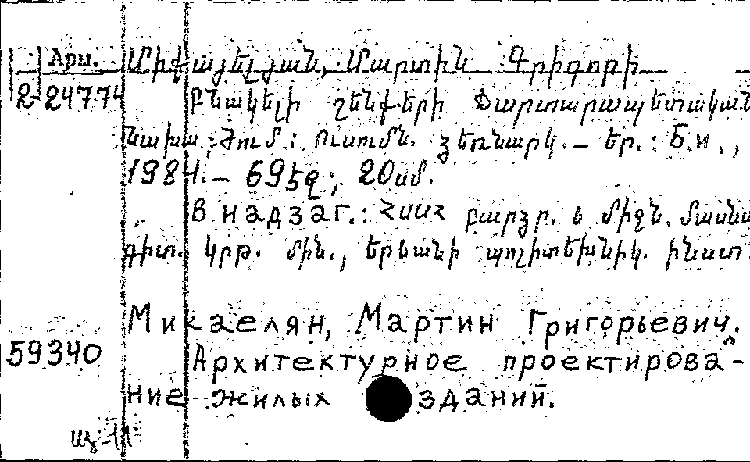 Арм. Միքայելյան, Մարտին Գրիգորի
2 24774 Բնակելի շենքերի ճարտարապետական
նախագծում: Ուսումն. ձեռնարկ. – Եր.: Б.и.,
1984. – 69էջ; 20սմ.
В надзаг.: ՀՍՍՀ բարձր. և միջն. մասնա
գիտ. կրթ. մին., Երևանի պոլիտեխնիկ. ինստ.
Микаелян, Мартин Григорьевич.
59340 Архитектурное проектирова-
ние жилых зданий.